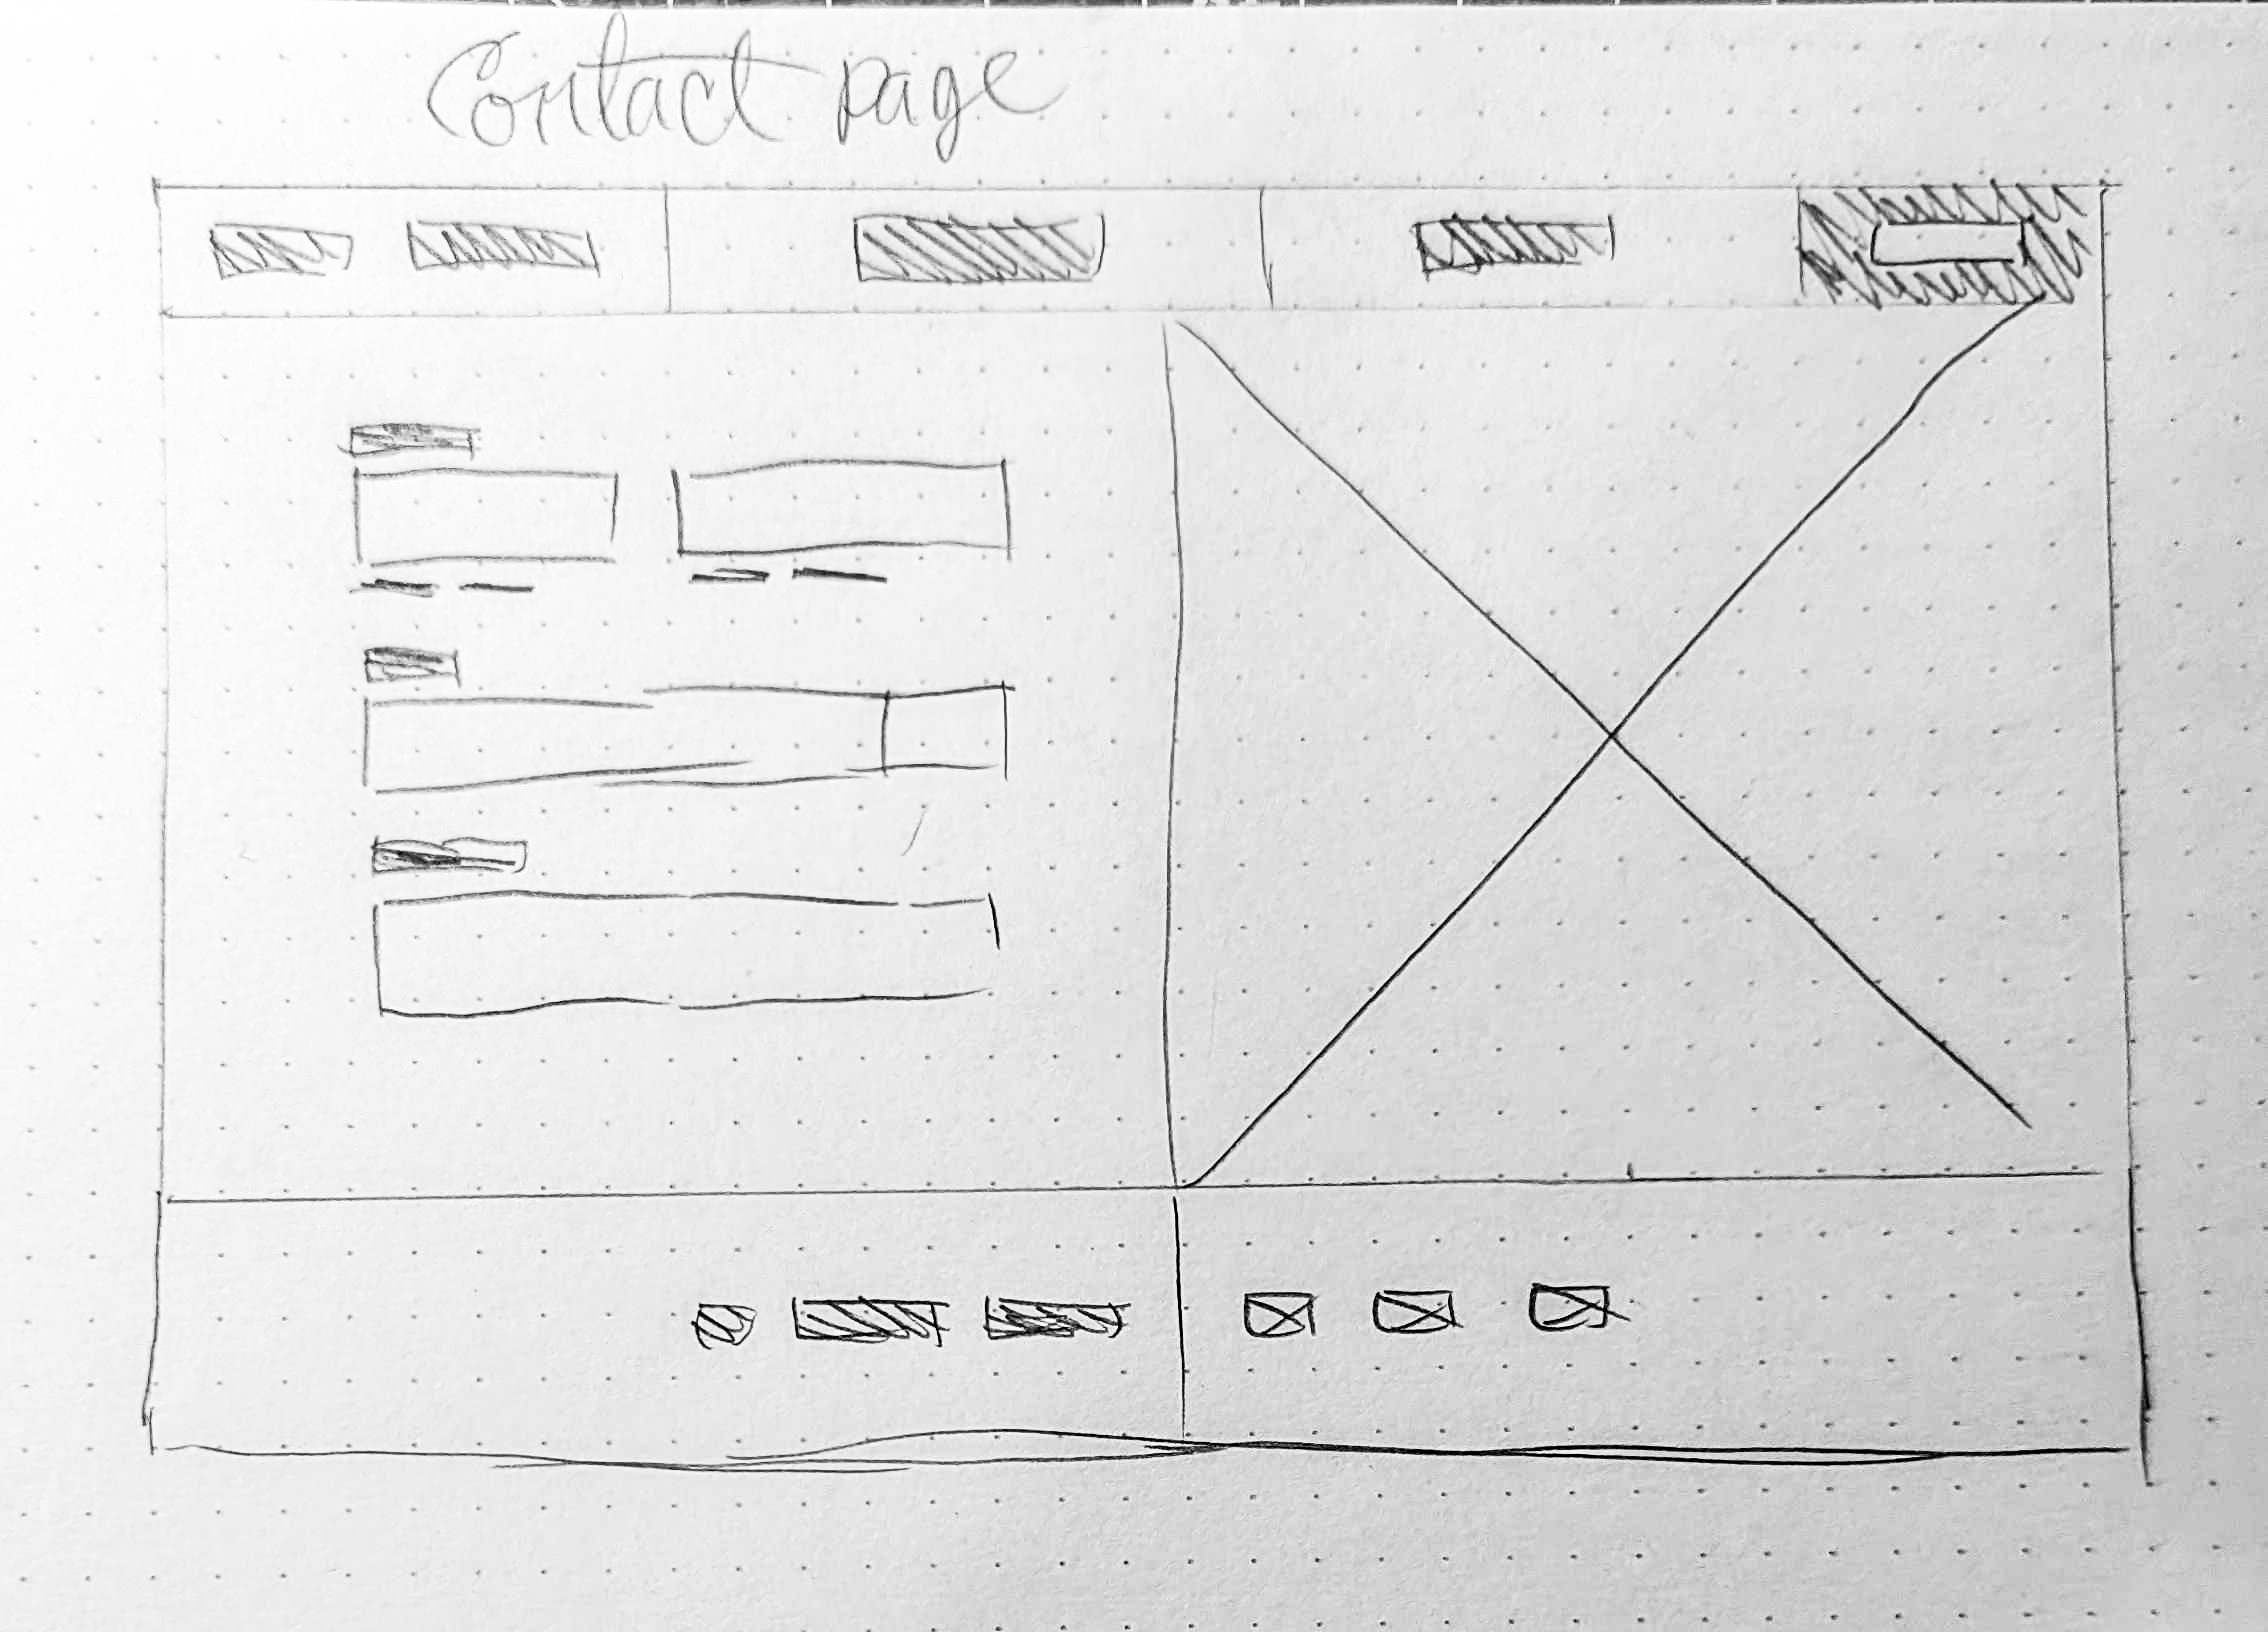 Contact page